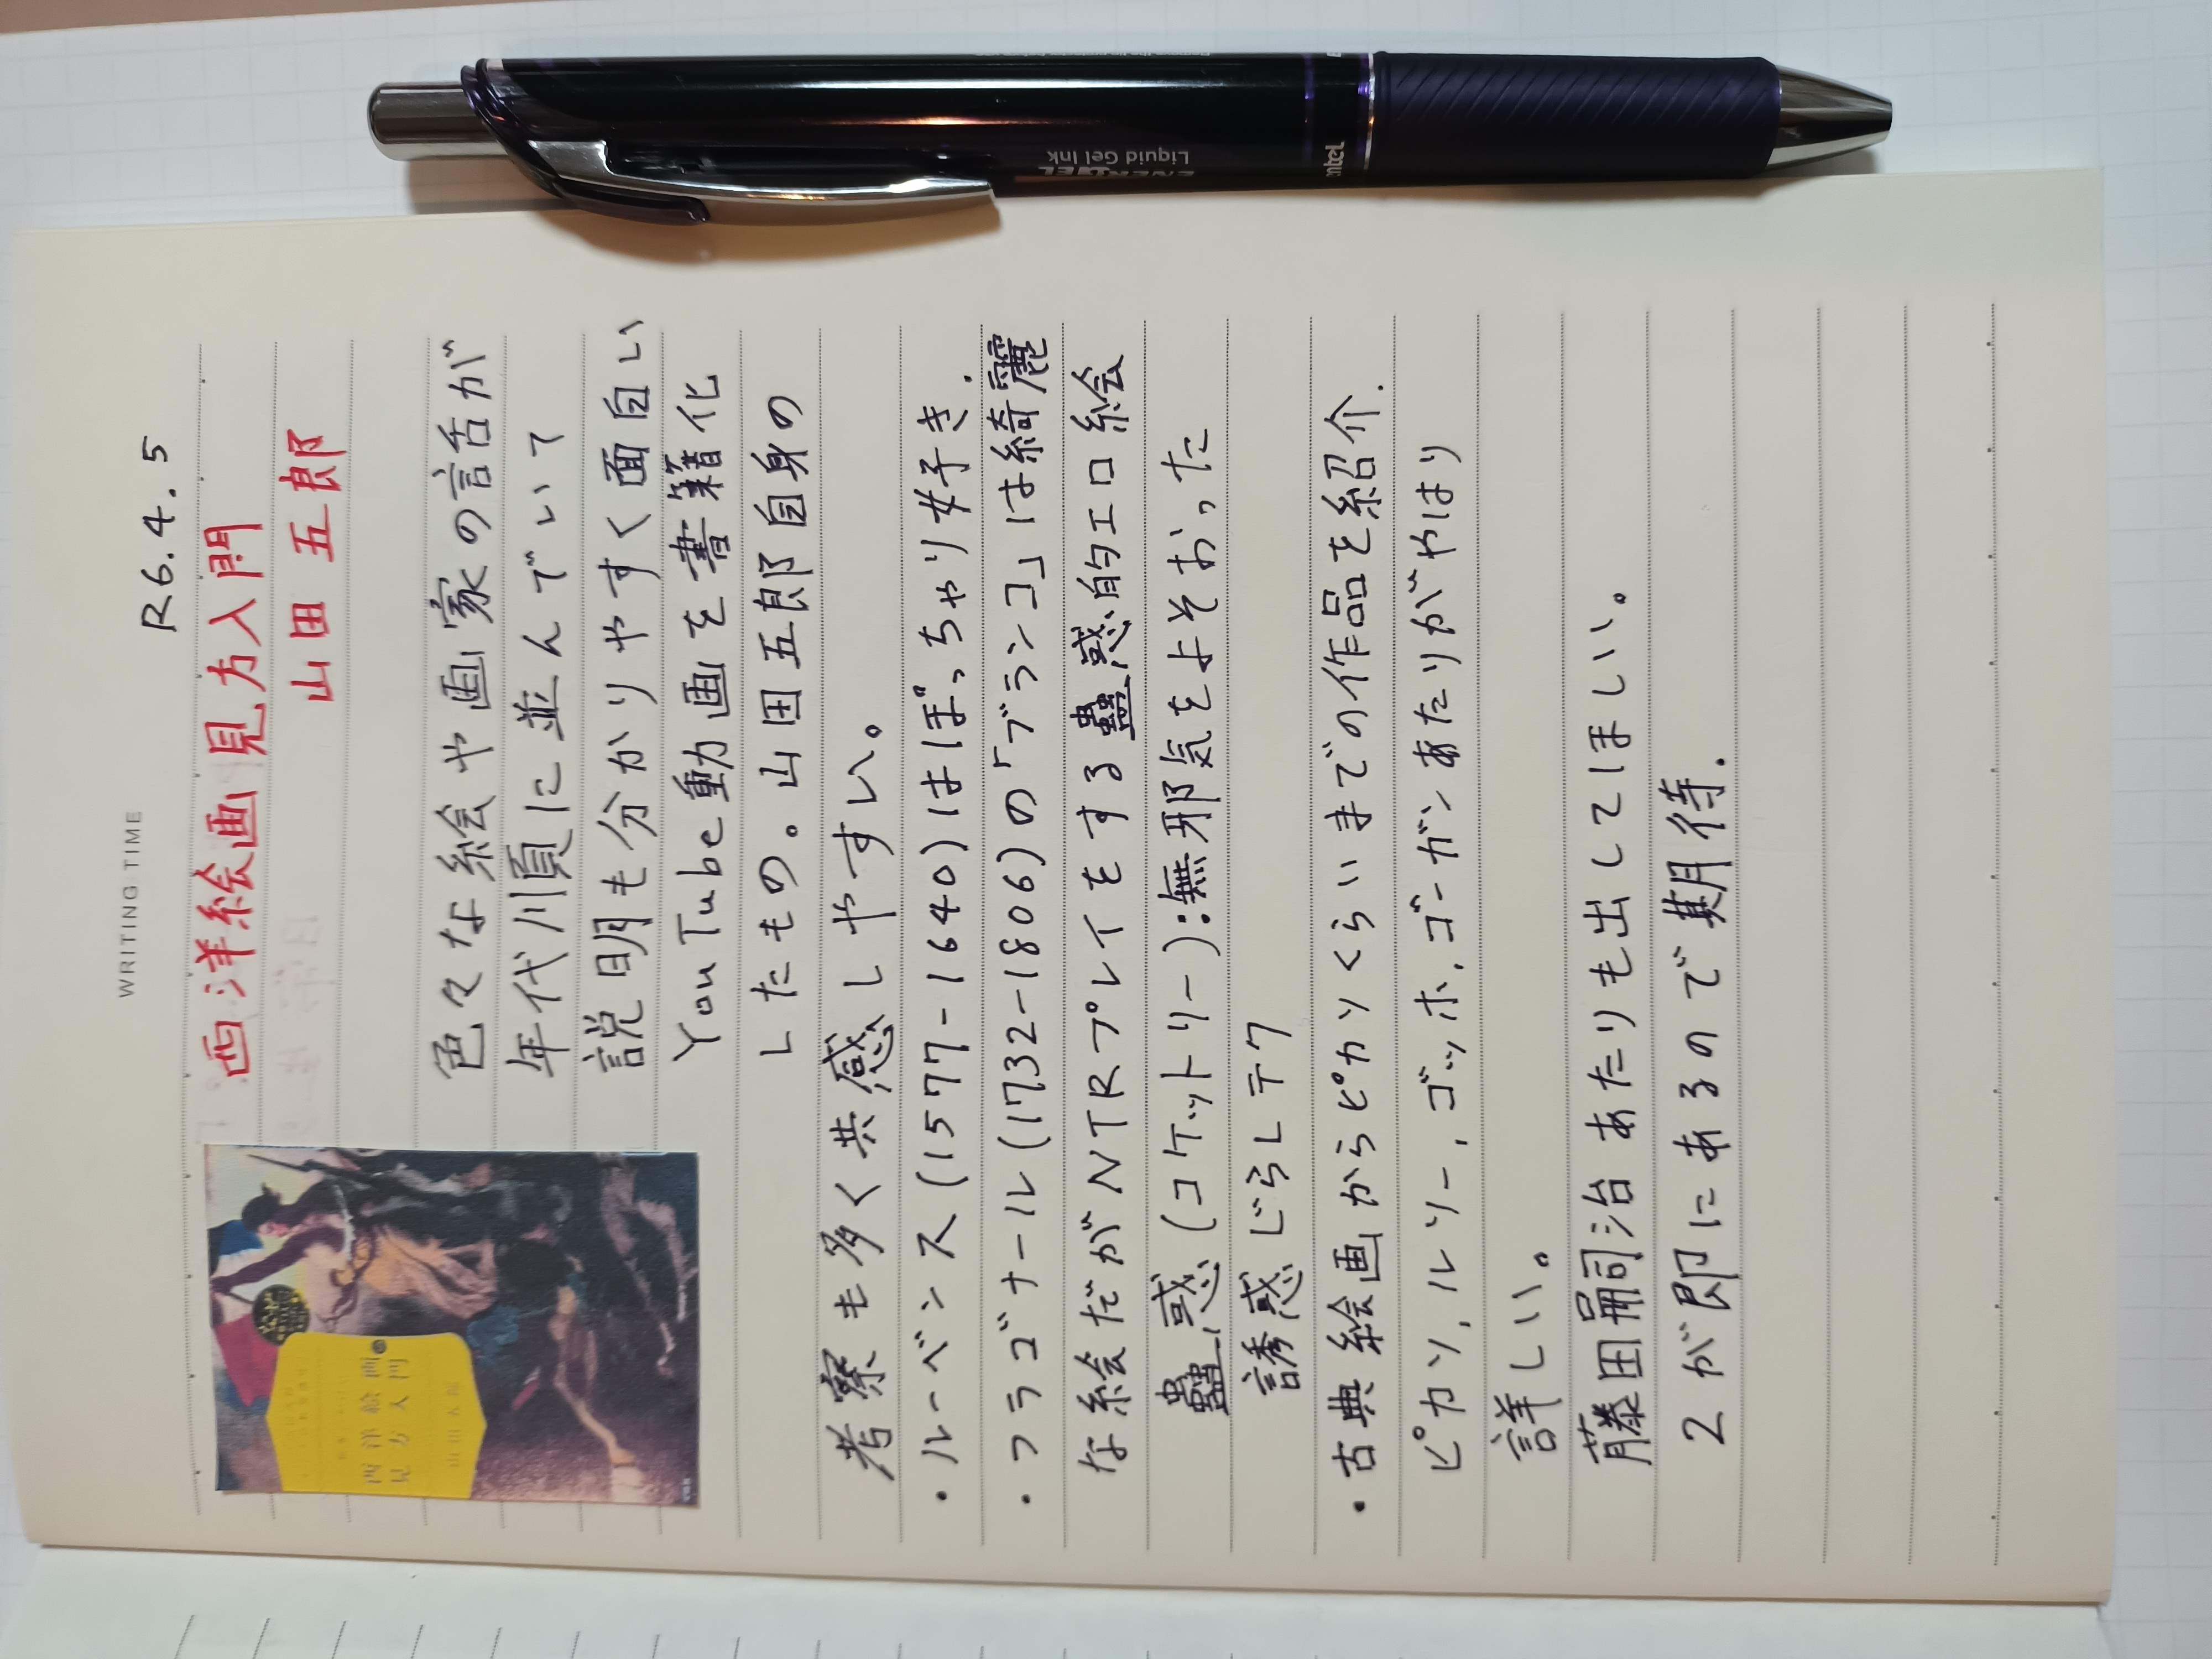 WRITING TIME
R6.4.5
西洋絵画見方入門
山田 五郎
色々な絵会や画家の言舌が
年代川頁に並んでいて
説明も分かりやすく面白い
YouTube動画を書籍化
したもの。山田五郎自身の
考察も多く共感しやすい。
・ルーベンス(1577-1640)はぽっちゃり好き.
・フラゴナール(1732-1806)の「ブランコ」は綺麗
な絵だがNTRプレイをする蠱惑的エロ絵
蠱惑(コケットリー):無邪気をよそおった
誘惑 じらしテク
・古典絵画からピカソくらいまでの作品を紹介.
ピカソ,ルソー,ゴッホ,ゴーガンあたりがやはり
詳しい。
藤田嗣治あたりも出してほしい。
2が即にあるので期待.
西洋絵画
見方入門
山田五郎
Liquid Gel Ink
ENERGEL